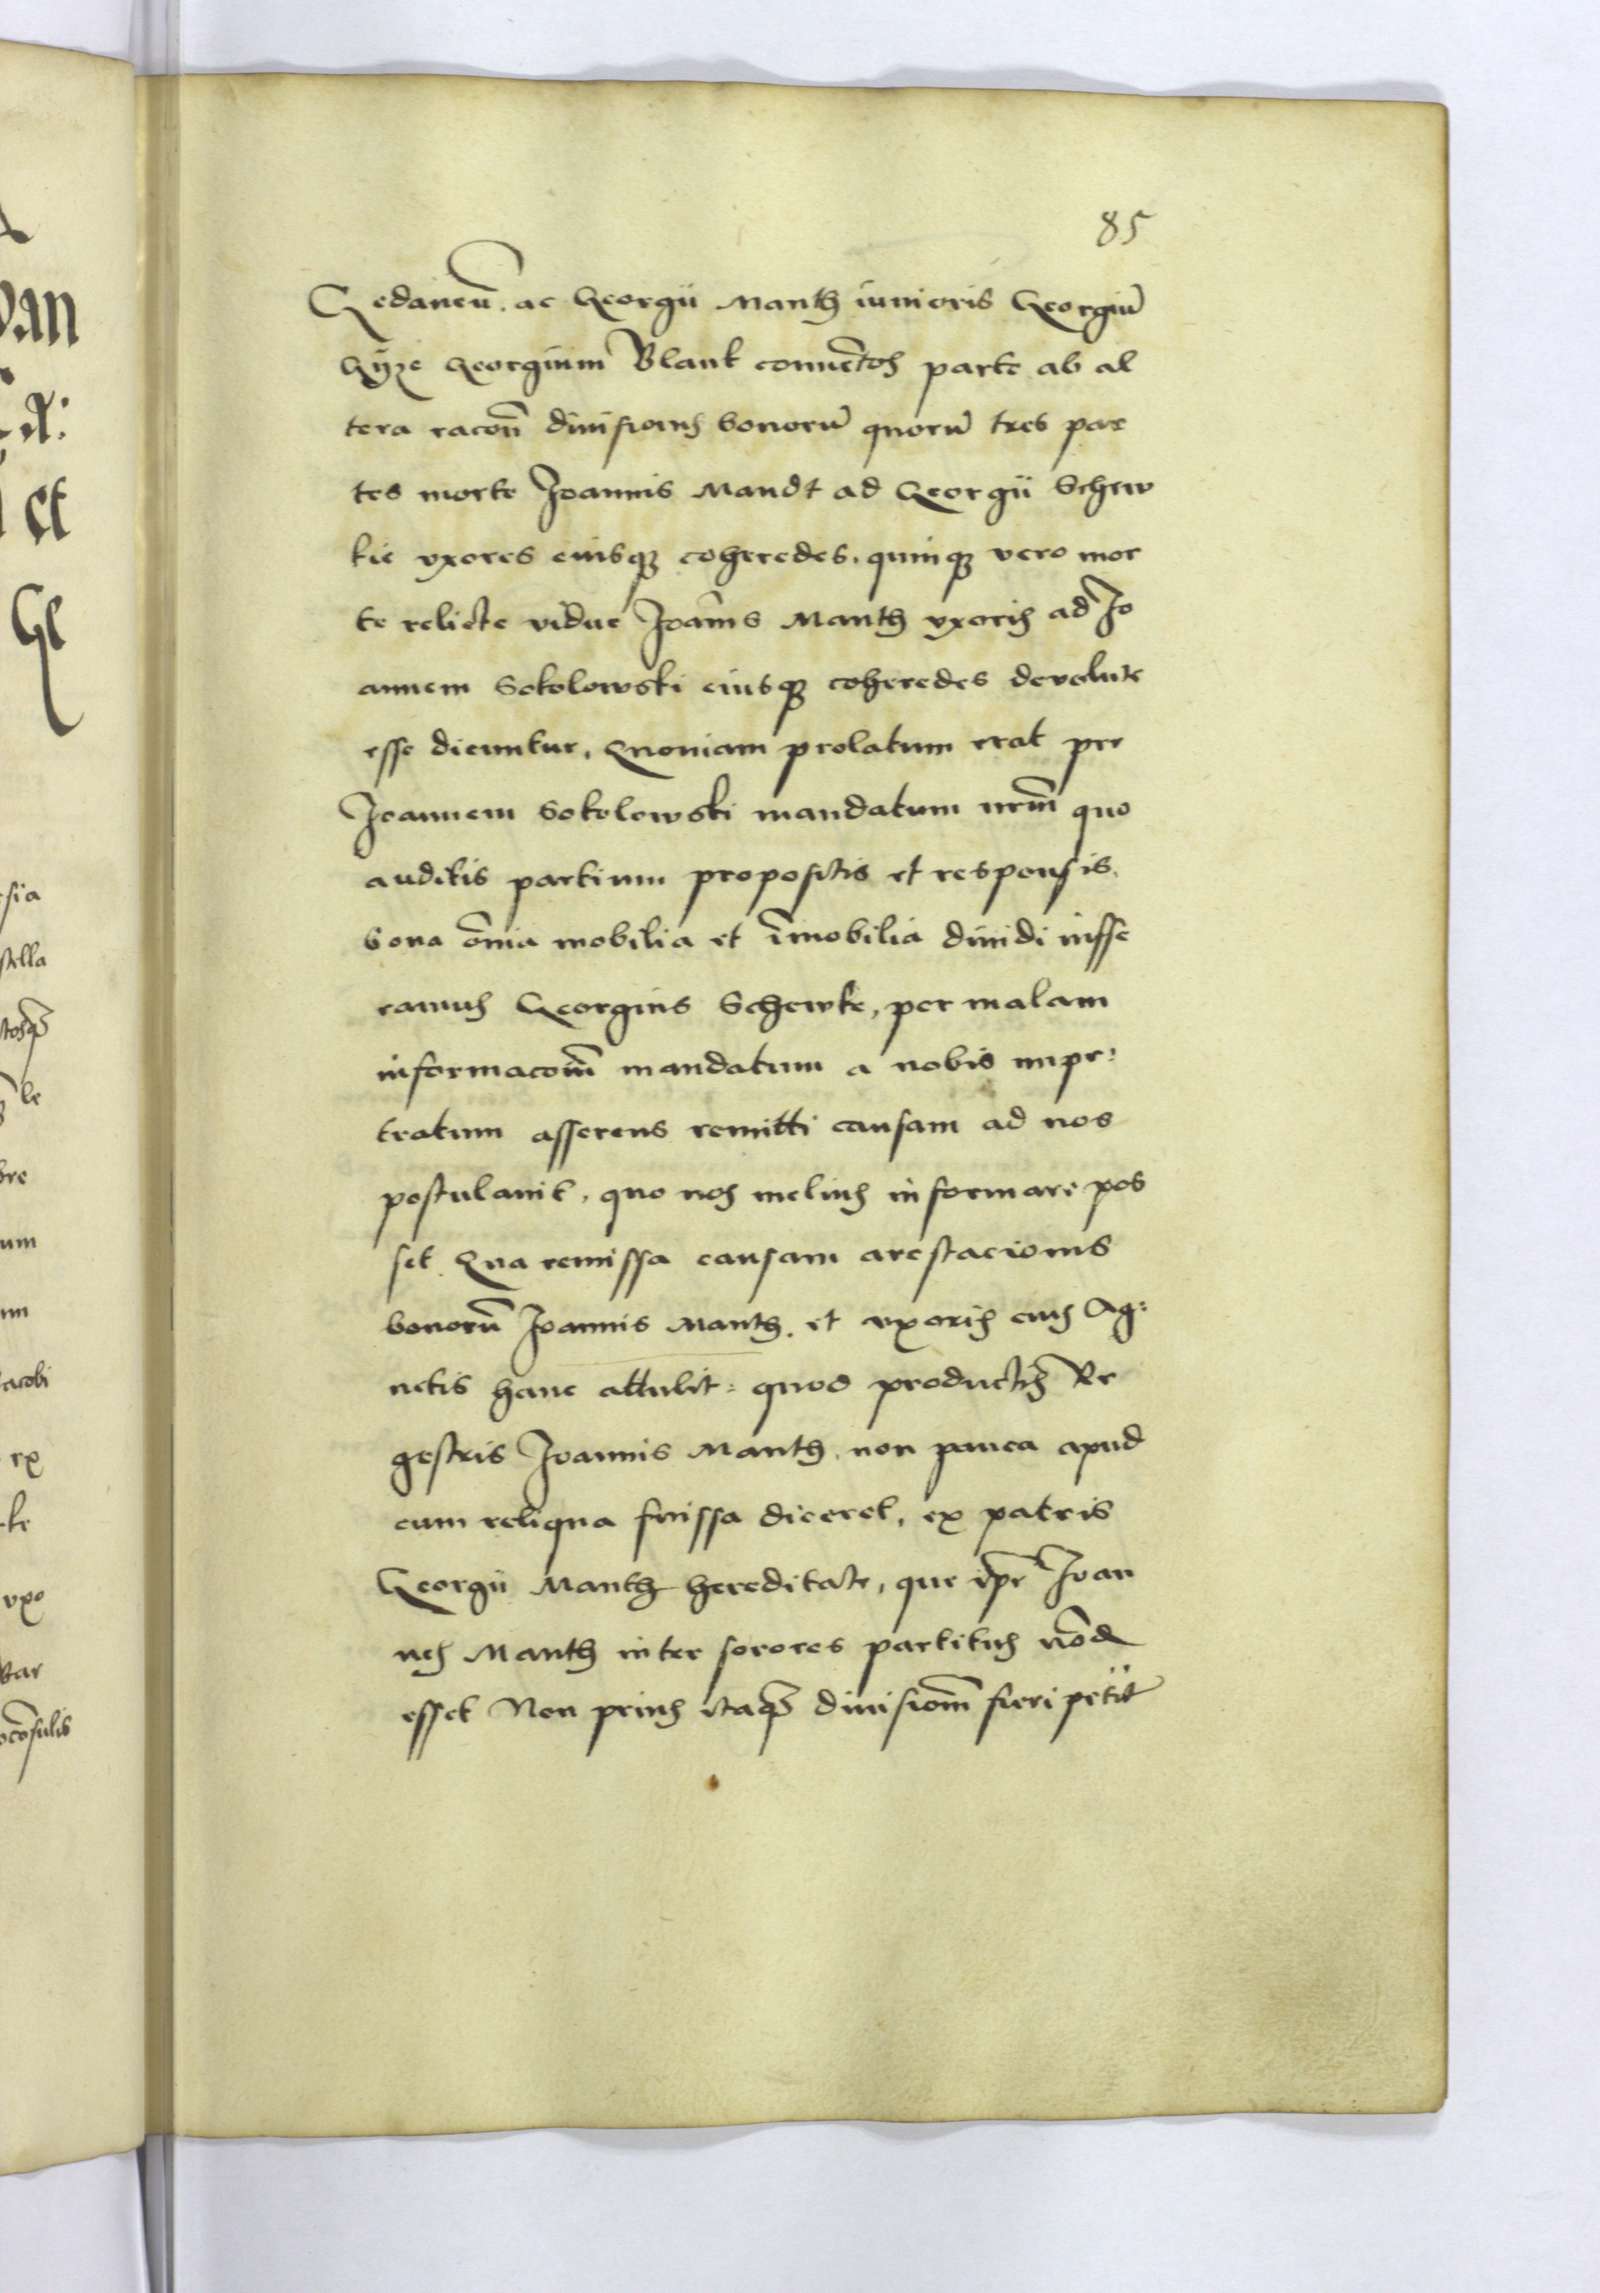 85
Gedaneñ. ac Georgii Manth iunioris Georgiū
Gyze Georgium Blank conuētos parte ab al
tera racōn diuisionis bonorū quorū tres par
tes morte Joannis Mandt ad Georgii Schew
kie vxores eiusq꜄ coheredes. quinq꜄ vero mor
te relicte vidue Joānis Manth vxoris ad Jo
annem Sokolowski eiusq꜄ coheredes devolute
esse dicuntur. Quoniam prolatum erat per
Joannem Sokolowski mandatum nr̄m quo
auditis partium propositis et responsis.
bona ōmia mobilia et īmobilia diuidi iusse
ramus Georgius Schewke, per malam
informacōm mandatum a nobis impe:
tratum asserens remitti causam ad nos
postulauit. quo nos melius informare pos
set. Qua remissa causam arestacionis
bonorū Joannis Manth. et vxoris eius Ag:
netis hanc attulit: quod productis Re
gestris Joannis Manth. non pauca apud
eum reliqua fuissa diceret, ex patris
Georgii Manth hereditate, que ip̄e Joan
nes Manth inter sorores partitus nōd
esset Non prius itaq꜄ diuisiōm fieri petiit
sia
stella
le
bre
um
um
Jacobi
ex
te
vxo
Bar
ocōsulis
van
et
Ge